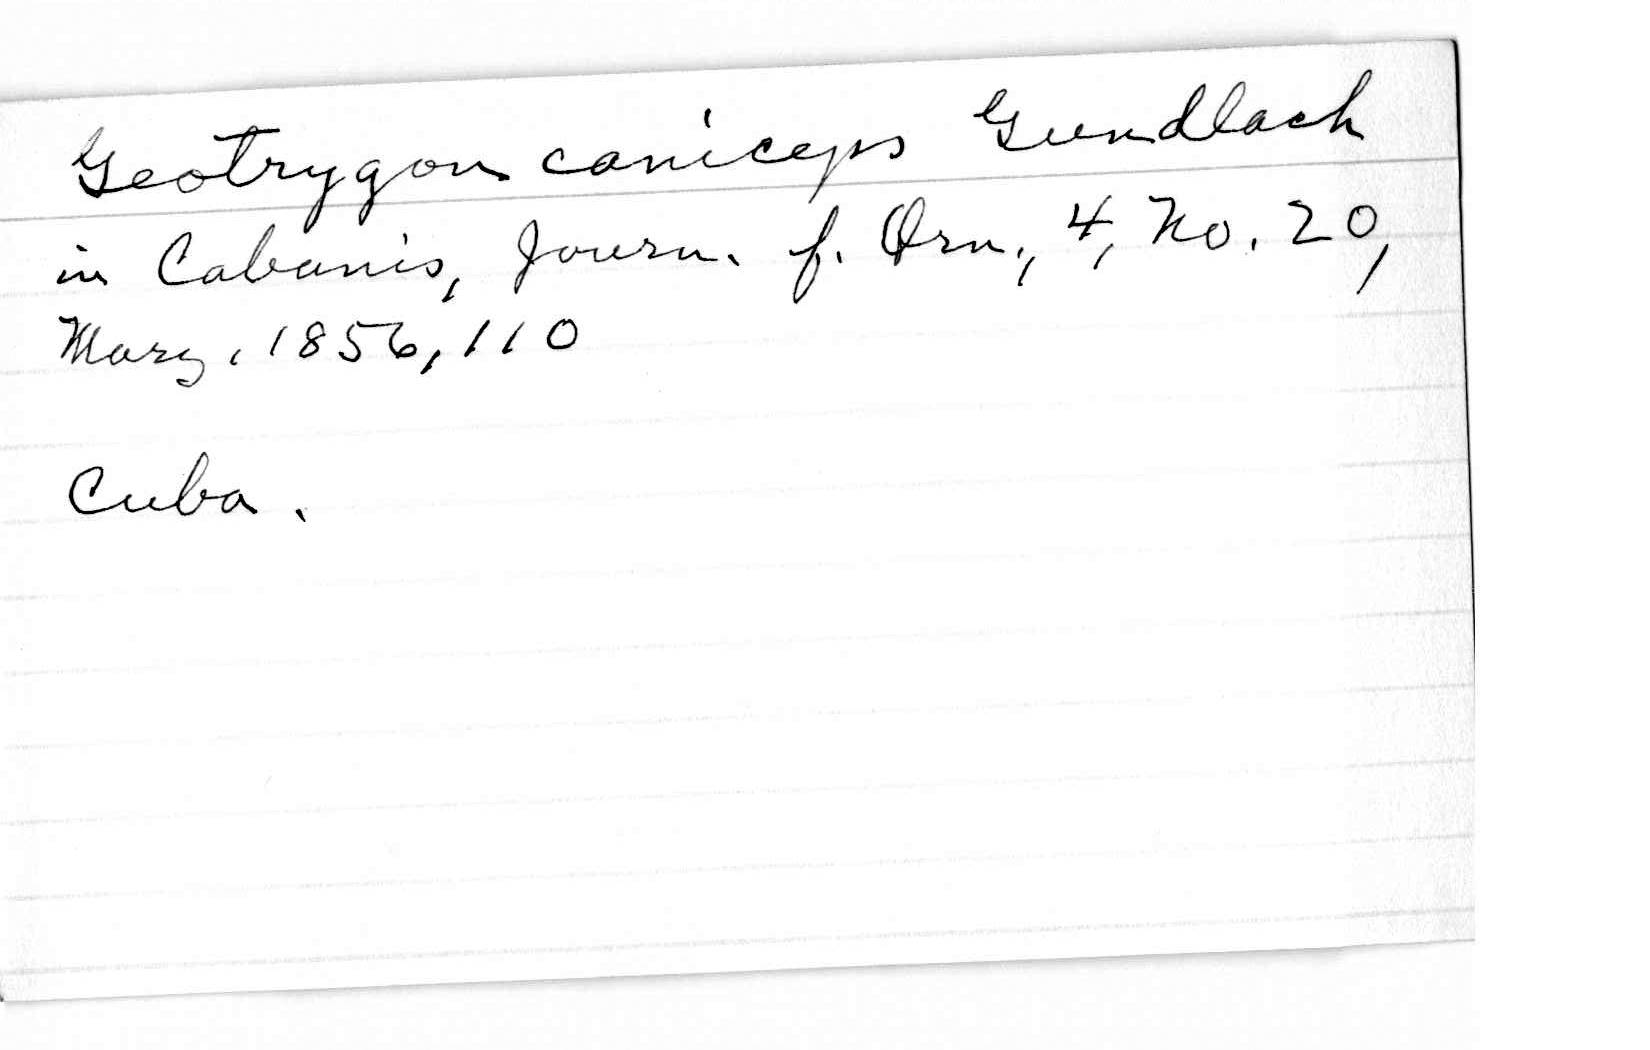 Geotrygon caniceps Gundlach
in Cabanis, Journ. f. Orn., 4, No. 20,
Marz, 1856, 110
Cuba.